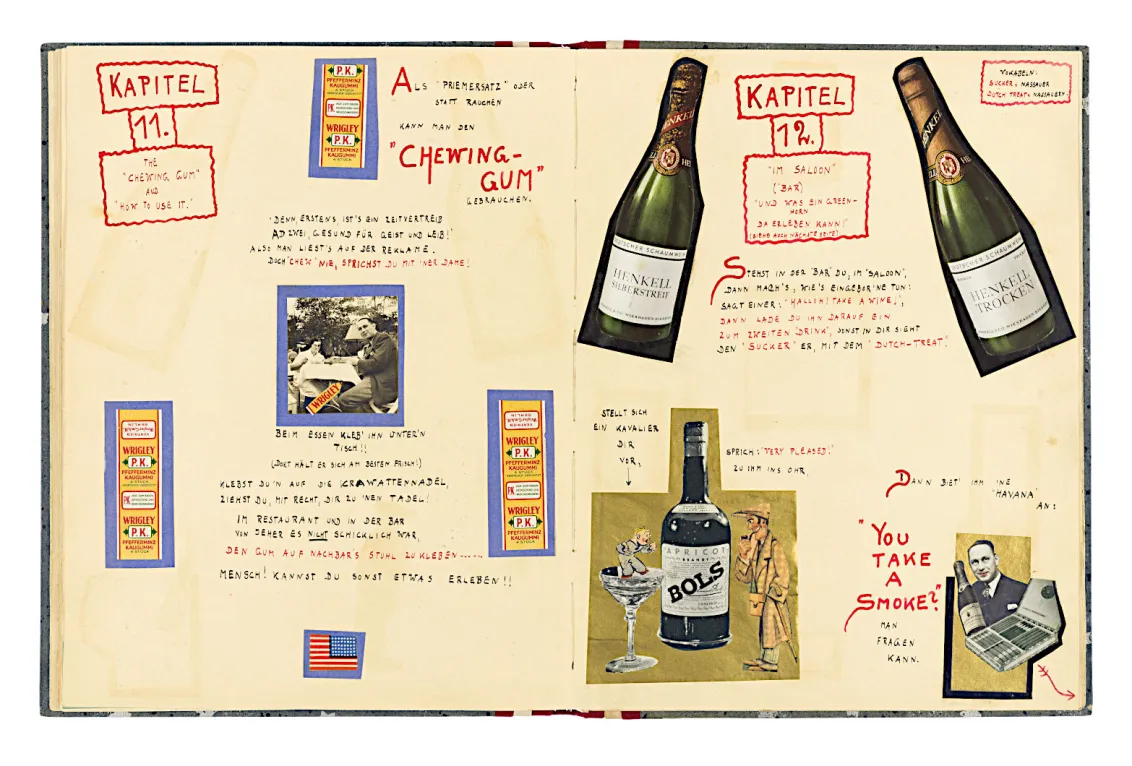 KAPITEL
11.
THE
"CHEWING GUM"
AND
"HOW TO USE IT."
P.K.
PFEFFERMINZ
KAUGUMMI
4 STÜCK
PK
WRIGLEY
P.K.
PFEFFERMINZ
KAUGUMMI
4 STÜCK
ALS "PRIEMERSATZ" ODER
STATT RAUCHEN
KANN MAN DEN
"CHEWING-
GUM"
GEBRAUCHEN.
"DENN, ERSTENS, IST'S EIN ZEITVERTREIB
AD ZWEI, GESUND FÜR GEIST UND LEIB!"
ALSO MAN LIEST'S AUF DER REKLAME.
DOCH "CHEW" NIE, SPRICHST DU MIT 'NER DAME!
WRIGLEY
BEIM ESSEN KLEB' IHN UNTER'N
TISCH!!
(DORT HÄLT ER SICH AM BESTEN FRISCH!)
KLEBST DU'N AUF DIE KRAWATTENNADEL,
ZIEHST DU, MIT RECHT, DIR ZU 'NEN TADEL!
IM RESTAURANT UND IN DER BAR
VON JEHER ES NICHT SCHICKLICH WAR,
DEN GUM AUF NACHBAR'S STUHL ZU KLEBEN......
MENSCH! KANNST DU SONST ETWAS ERLEBEN!!
WRIGLEY
P.K.
PFEFFERMINZ
KAUGUMMI
4 STÜCK
PK
WRIGLEY
P.K.
PFEFFERMINZ
KAUGUMMI
4 STÜCK
WRIGLEY
P.K.
PFEFFERMINZ
KAUGUMMI
4 STÜCK
PK
WRIGLEY
P.K.
PFEFFERMINZ
KAUGUMMI
4 STÜCK
KAPITEL
12.
"IM SALOON"
("BAR)
"UND WAS EIN GREEN-
HORN
DA ERLEBEN KANN!"
(SIEHE AUCH NÄCHSTE SEITE)
VOKABELN:
SUCKER: NASSAUER
DUTCH TREAT: NASSAUERN.
HENKELL
DEUTSCHER SCHAUMWEIN
HENKELL
SILBERSTREIF
HENKELL
DEUTSCHER SCHAUMWEIN
HENKELL
TROCKEN
STEHST IN DER "BAR" DU, IM "SALOON",
DANN MACH'S, WIE'S EINGEBOR'NE TUN:
SAGT EINER: "HALLOH! TAKE A WINE,",
DANN LADE DU IHN DARAUF EIN
ZUM ZWEITEN "DRINK", SONST IN DIR SIEHT
DEN "SUCKER" ER, MIT DEM "DUTCH-TREAT!
STELLT SICH
EIN KAVALIER
DIR
VOR,
SPRICH: "VERY PLEASED!"
ZU IHM INS OHR,
APRICOT
BRANDY
BOLS
DANN BIET' IHM 'NE
"HAVANA"
AN:
"YOU
TAKE
A
SMOKE?"
MAN
FRAGEN
KANN.